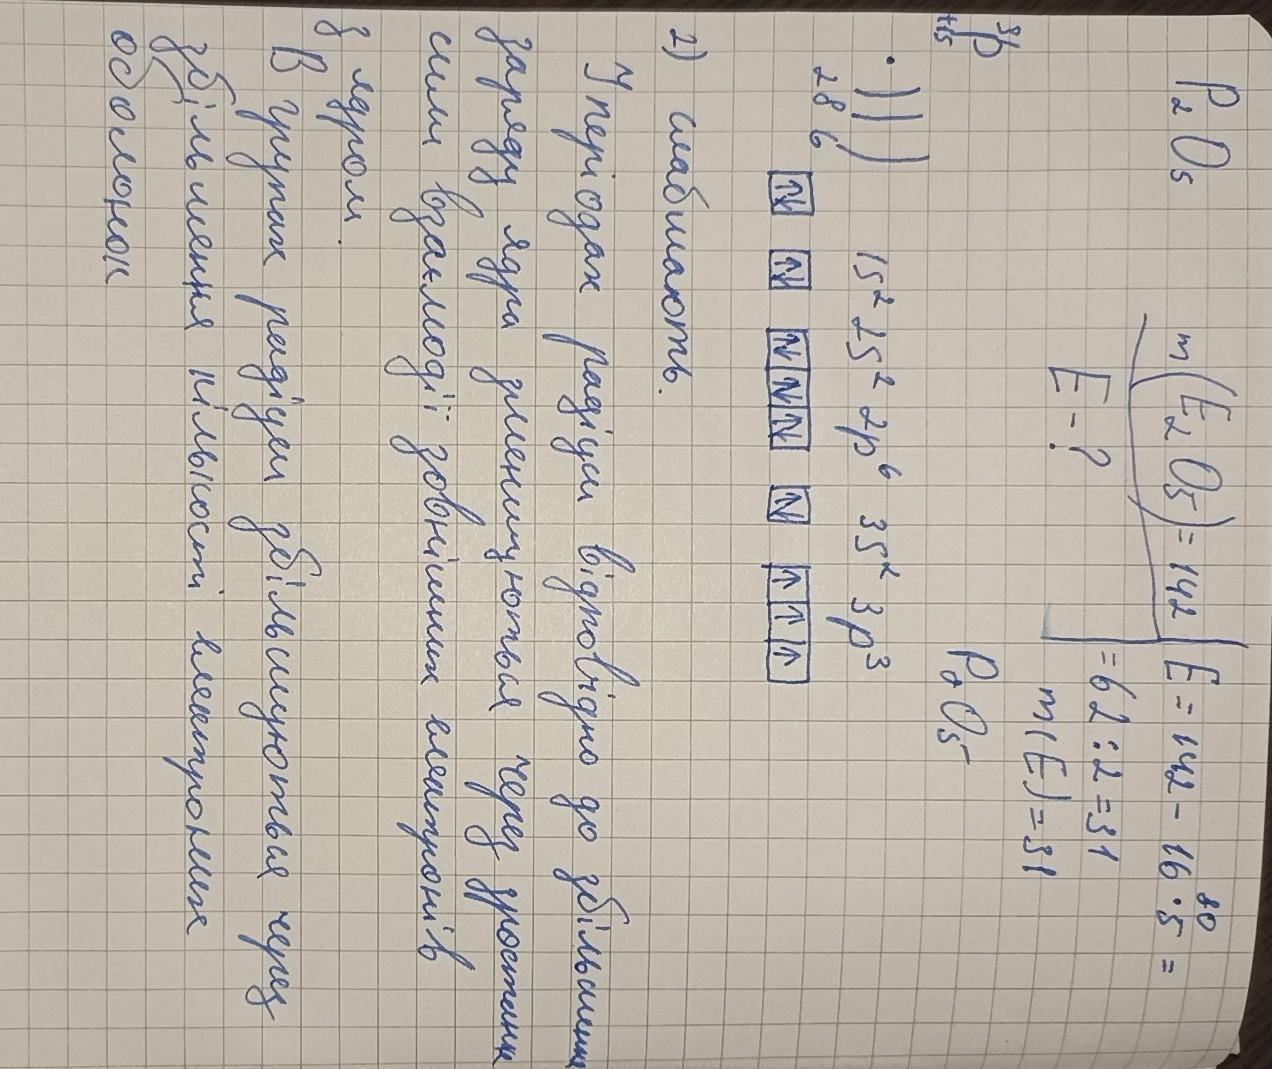 P₂O₅
m(E₂O₅)=142
E-?
E=142-16·5=
80
=62:2=31
m(E)=31
P₂O₅
31
P
+15
· ) ) )
2 8 6
1s² 2s² 2p⁶ 3s² 3p³
2) слабшають.
У періодах радіуси відповідно до збільшення
заряду ядра зменшуються через зростання
сили взаємодії зовнішних електронів
з ядром.
В групах радіуси збільшуються через
збільшення кількості електронних
оболонок